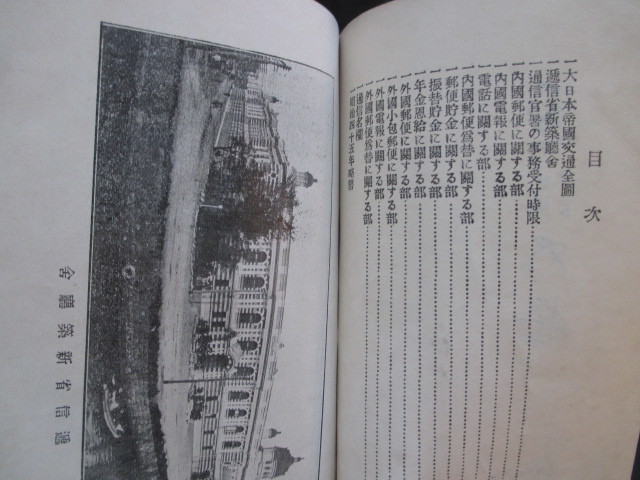 目次
一大日本帝國交通全圖
一遞信省新築廳舍
一通信官署の事務受付時限
一內國郵便に關する部
一內國電報に關する部
一電話に關する部
一內國郵便爲替に關する部
一郵便貯金に關する部
一振替貯金に關する部
一年金恩給に關する部
一外國郵便に關する部
一外國小包郵便に關する部
一外國電報に關する部
一外國郵便爲替に關する部
一通信名欄
明治四十五年略曆
遞信省新築廳舍